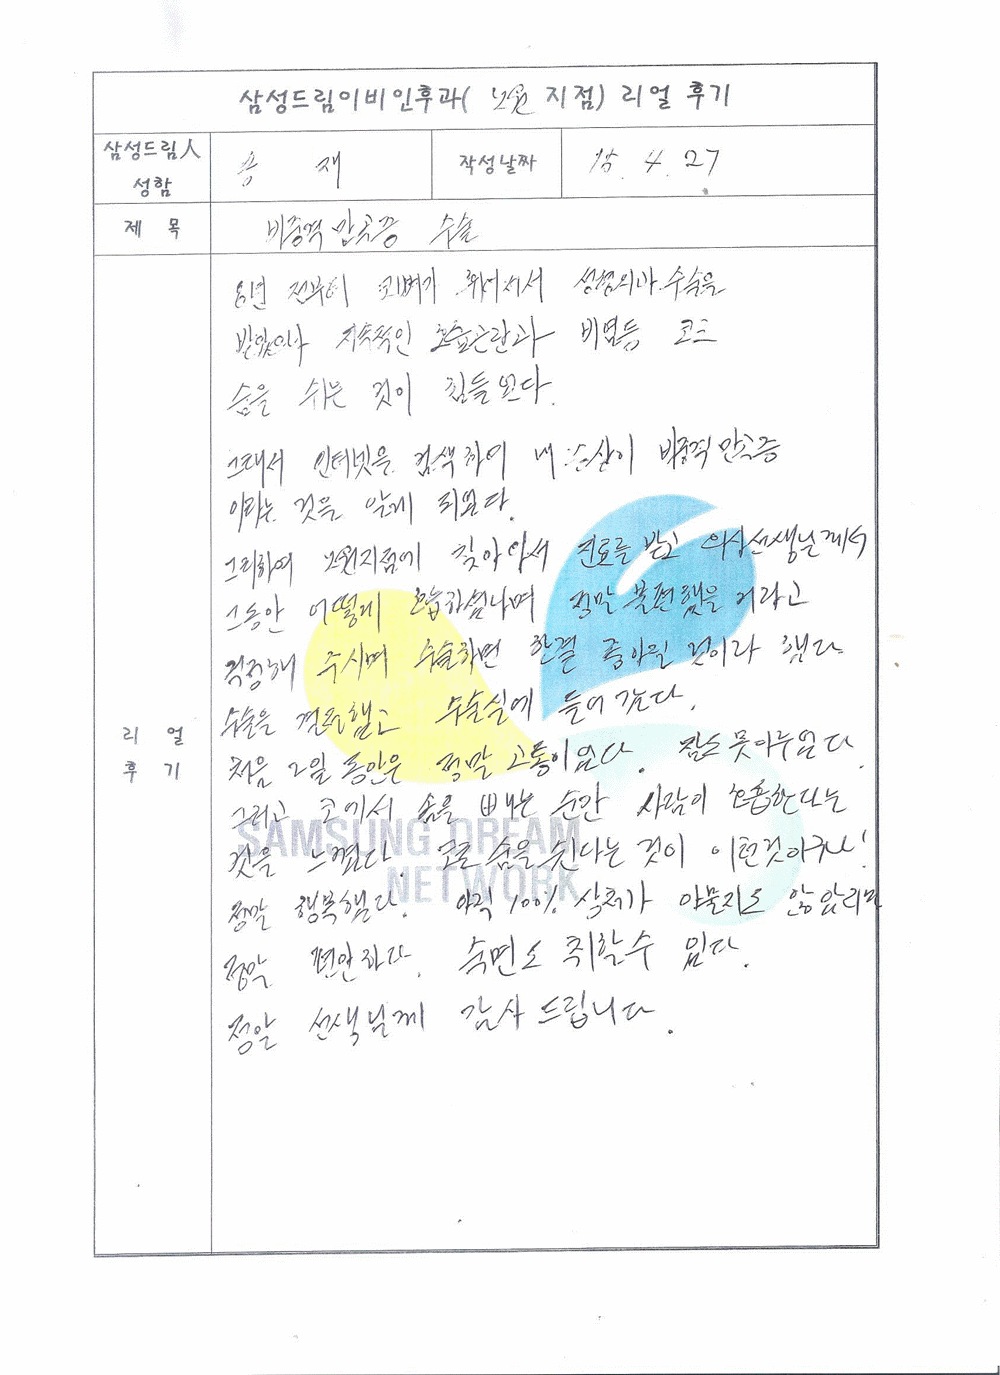 삼성드림이비인후과( 노원 지점) 리얼 후기
삼성드림人 성함
용 재
작성날짜
15. 4. 27
제 목
비중격 만곡증 수술
리 얼 후 기
8년 전부터 코뼈가 휘어져서 성형외과 수술을
받았으나 지속적인 호흡곤란과 비염등 코로
숨을 쉬는 것이 힘들었다.
그래서 인터넷을 검색하여 내 증상이 비중격 만곡증
이라는 것을 알게 되었다.
그리하여 노원지점에 찾아와서 진료를 받고 의사선생님께서
그동안 어떻게 호흡하셨냐며 정말 불편했을 거라고
걱정해 주시며 수술하면 한결 좋아질 것이라 했다
수술을 결정했고 수술실에 들어 갔다.
처음 2일 동안은 정말 고통이었다. 잠도 못이루었다
그리고 코에서 솜을 빼는 순간 사람이 호흡한다는
것을 느꼈다. 코로 숨을 쉰다는 것이 이런것이구나!
정말 행복했다. 아직 100% 상처가 아물지도 않았지만
정말 편안하다. 숙면도 취할수 있다.
정말 선생님께 감사 드립니다.
SAMSUNG DREAM
NETWORK